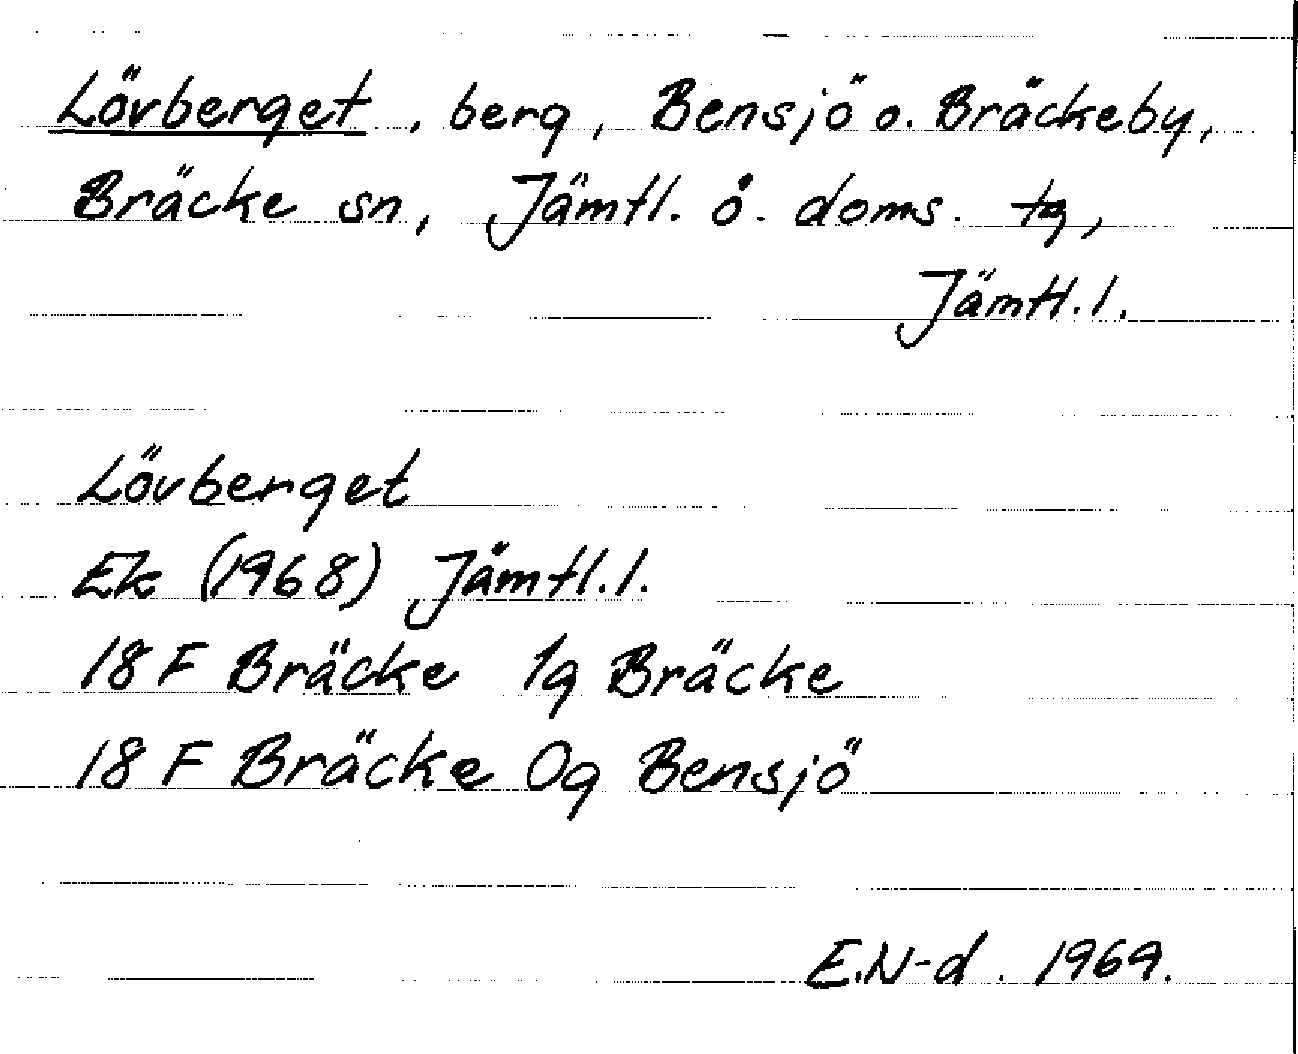 Lövberget, berg, Bensjö o. Bräckeby,
Bräcke sn, Jämtl. ö. doms. tg,
Jämtl.l.
Lövberget
Ek (1968) Jämtl.l.
18 F Bräcke 1g Bräcke
18 F Bräcke 0g Bensjö
E.N-d. 1969.